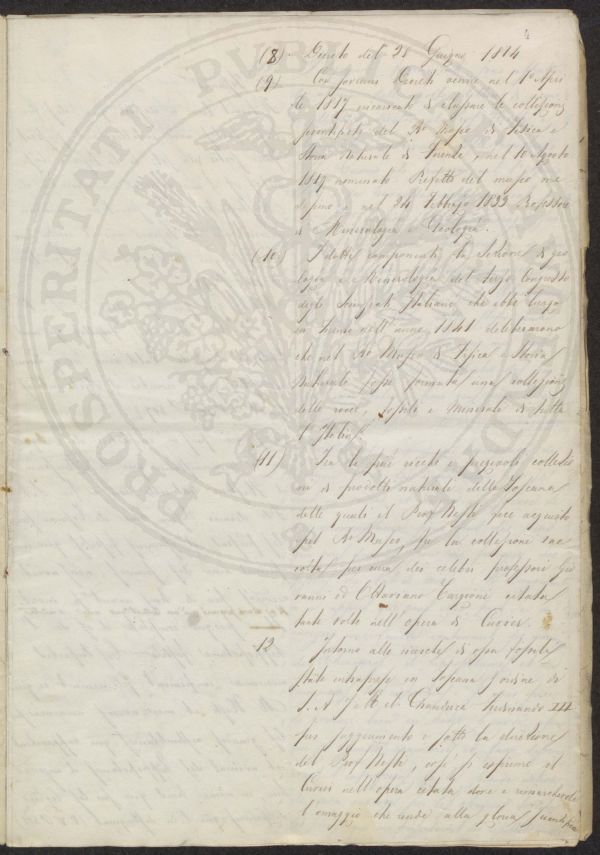 4
(8) Decreto del 28 Giugno 1814
(9) Con sovrani Decreti venne nel 1° Apri
le 1817 incaricato di classare le collezioni
del R° Museo di Fisica e
Storia Naturale di Firenze, nel 10 Agosto
1819 nominato Prefetto del museo me
desimo e nel 24 Febbrajo 1833 Professore
di Mineralogia e Geologia.
(10) I dotti componenti la Sezione di geo
logia e Mineralogia del terzo Congresso
degli Scienziati Italiani che ebbe luogo
in Firenze nell'anno 1841 deliberarono
che nel R° Museo di Fisica e Storia
Naturale fosse formata una collezione
delle rocce, fossili e minerali di tutta
l'Italia.
(11) Tra le più ricche e pregevoli collezio
ni di prodotti naturali della Toscana
delle quali il Prof Nesti fece acquisto
pel R° Museo, fu la collezione rac
colta per cura dei celebri professori Gio
vanni ed Ottaviano Targioni citata
tante volte nell'opera di Cuvier.
12 Intorno alle ricerche di ossa fossili
state intraprese in Toscana d'ordine di
S. A. I. e R. il Granduca Ferdinando III
per suggerimento e sotto la direzione
del Prof Nesti, così si esprime il
Cuvier nell'opera citata dove è rimarchevole
l'omaggio che rende alla gloria scientifica
PROSPERITATI PUBLICAE